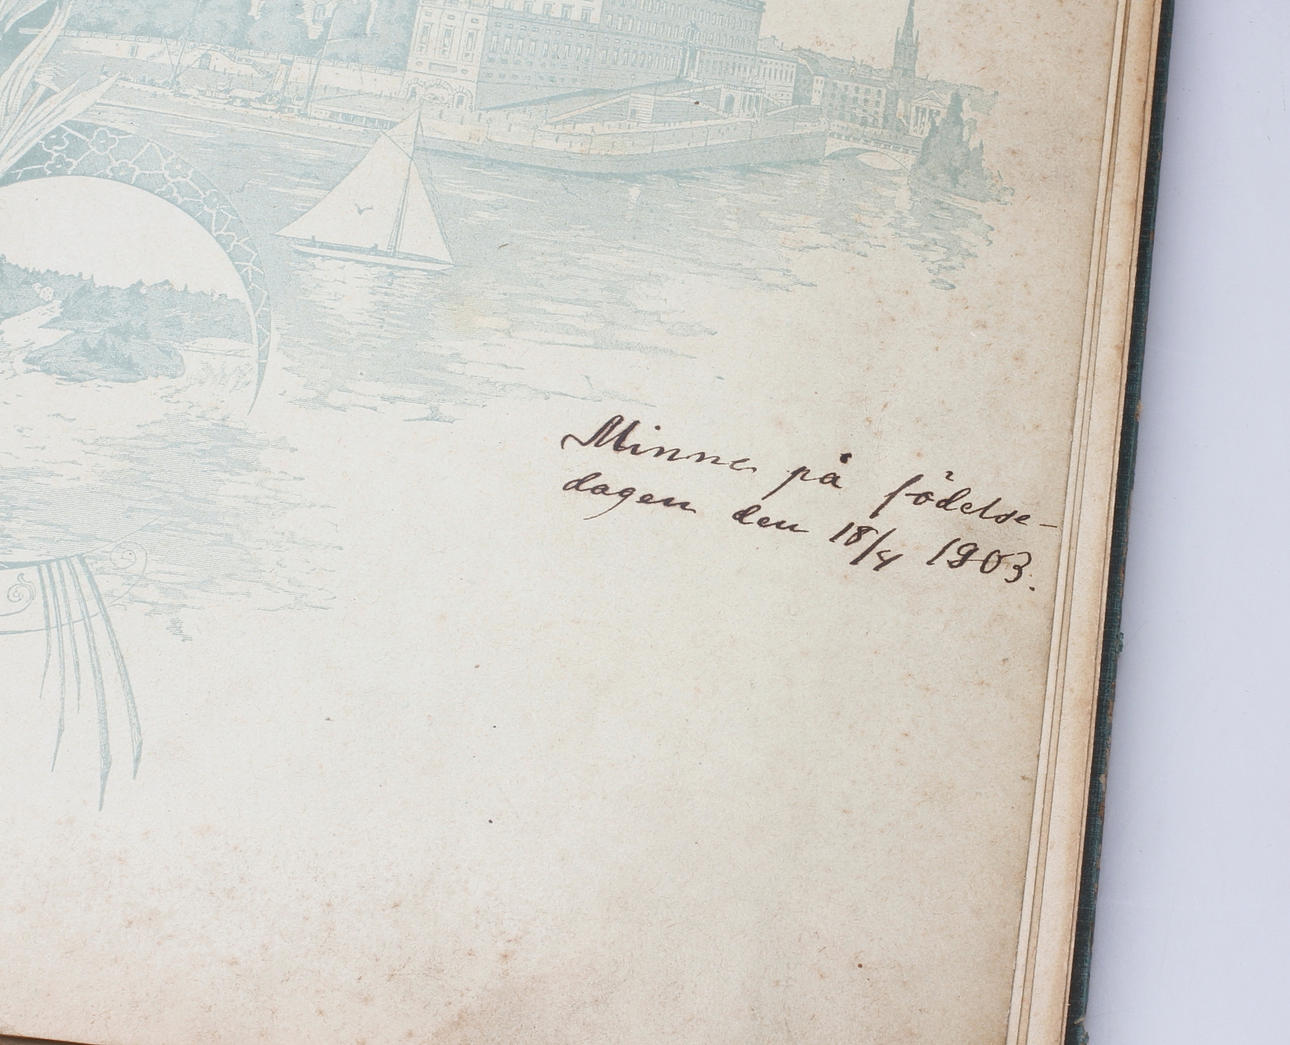 Minne på födelse-
dagen den 18/4 1903.